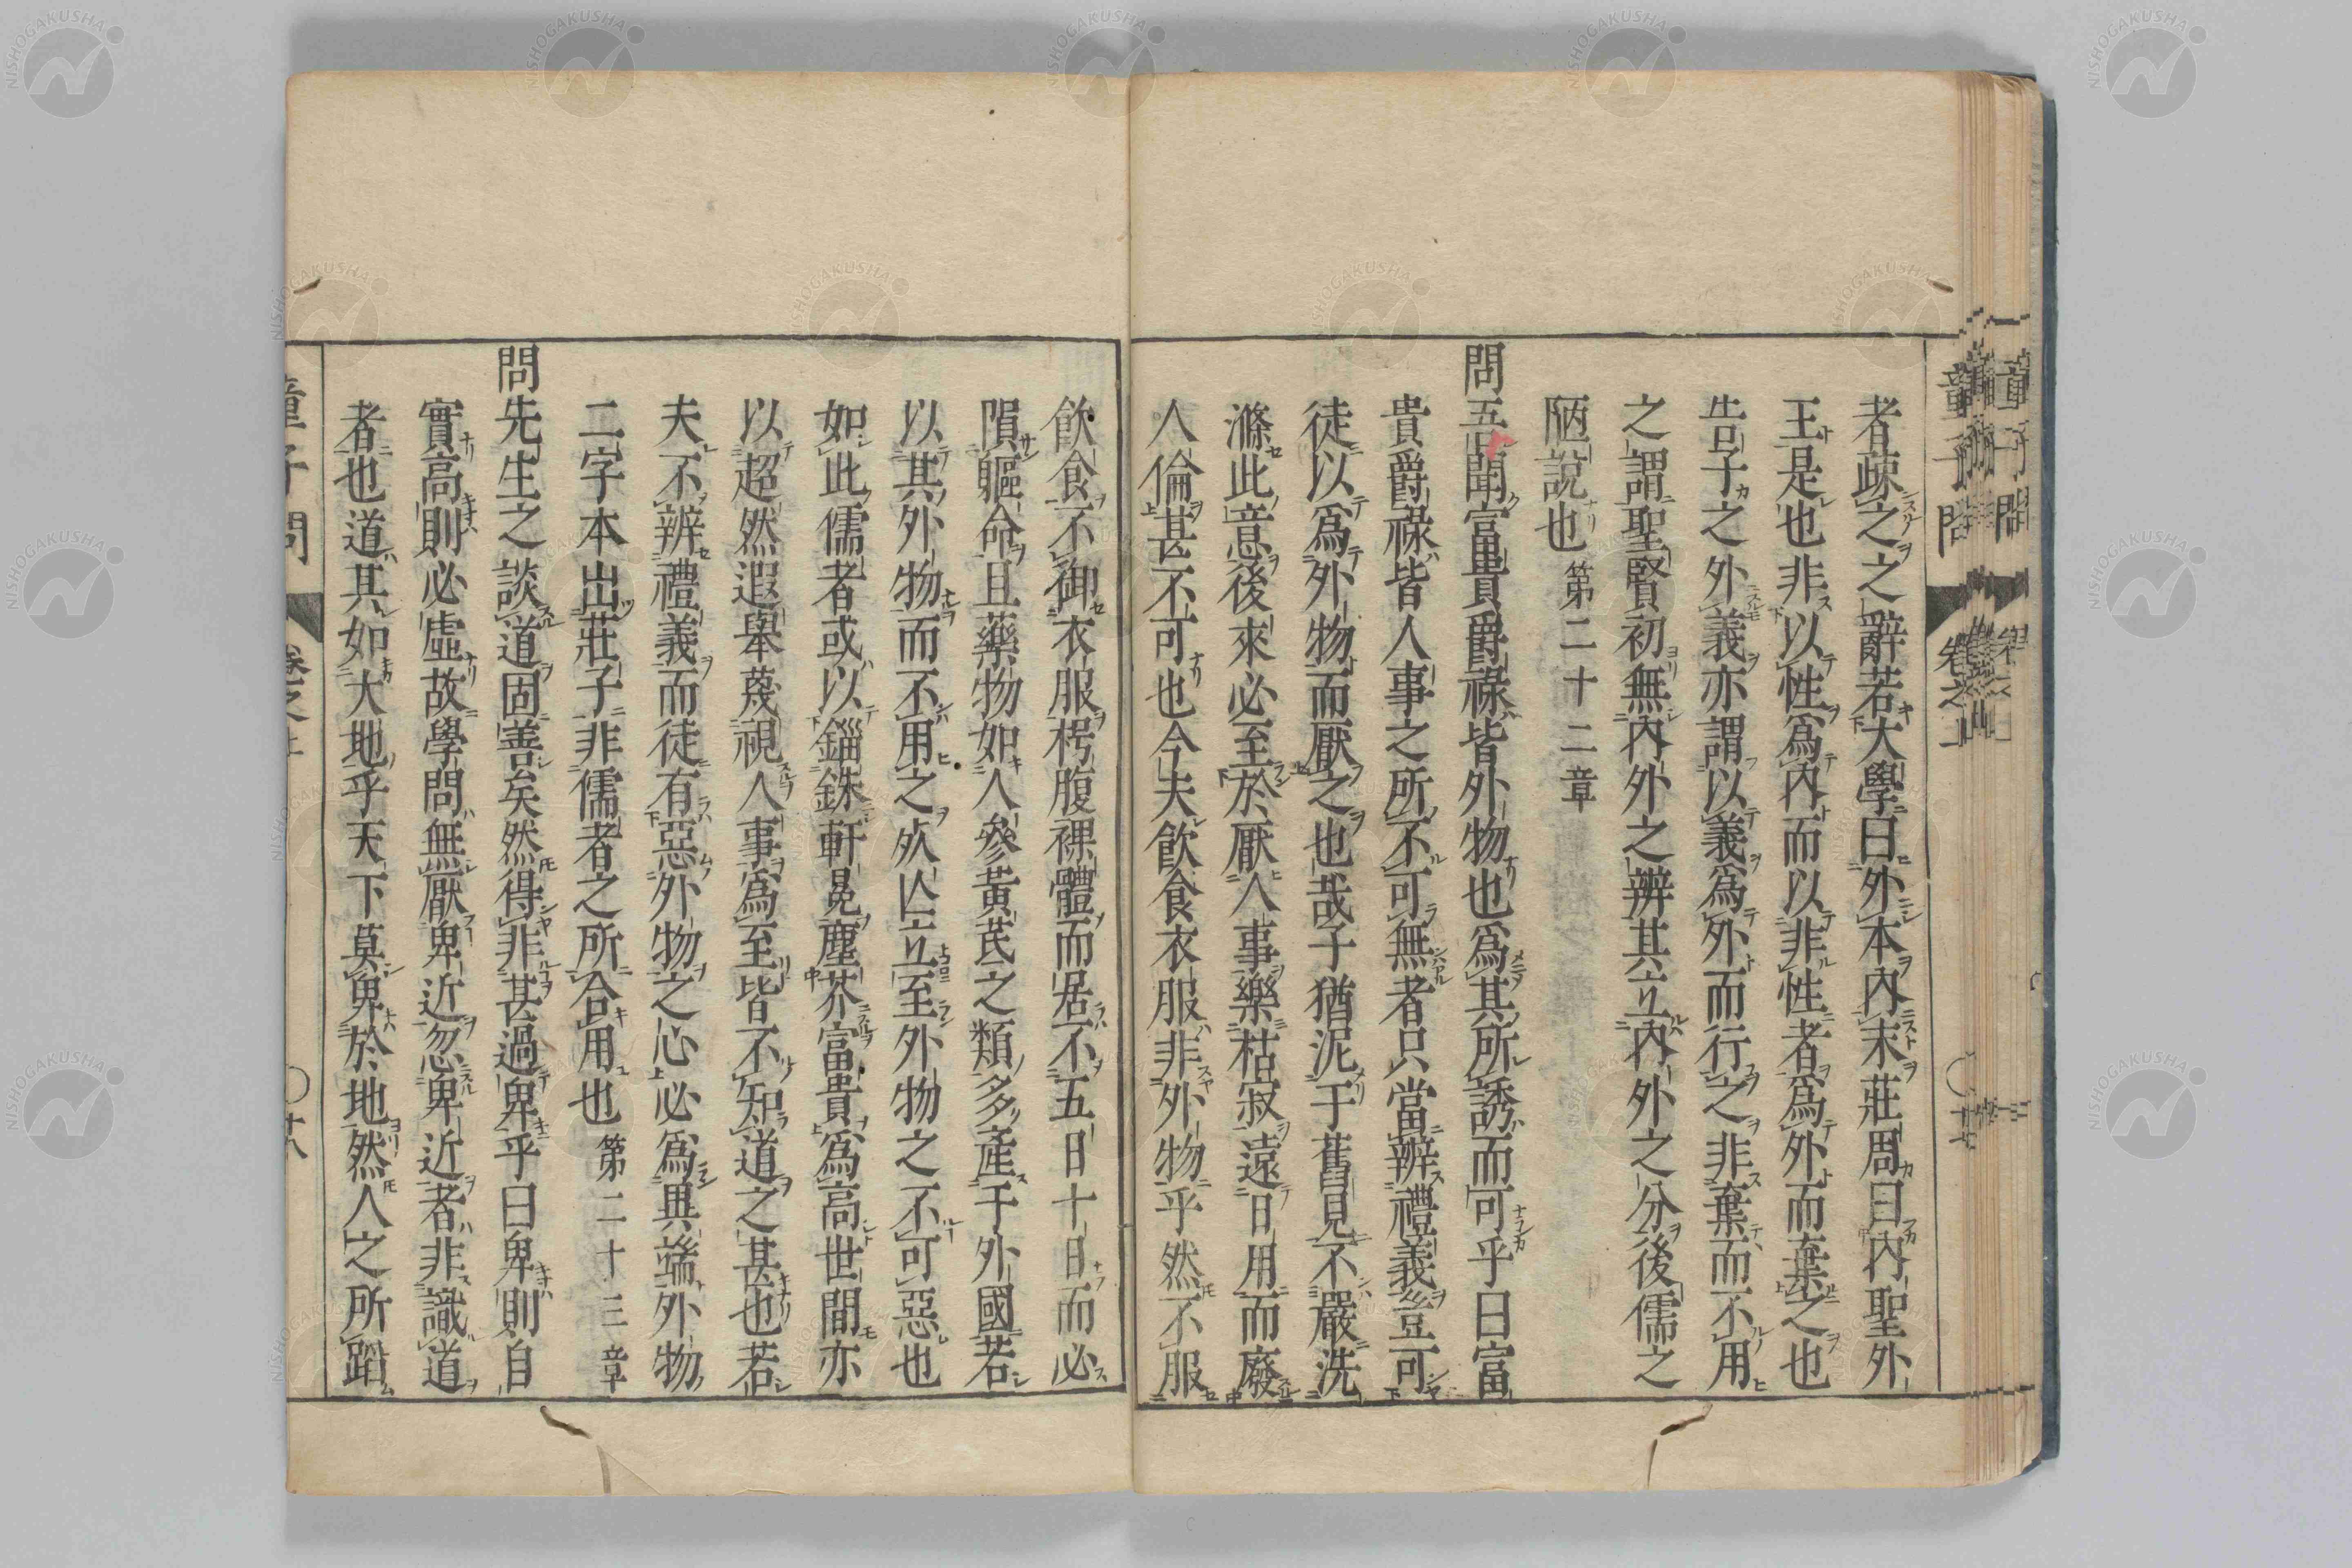 者疎之之辭若大學曰外本內末莊周曰內聖外
王是也非以性爲內而以非性者爲外而棄之也
告子之外義亦謂以義爲外而行之非棄而不用
之謂聖賢初無內外之辨其立內外之分後儒之
陋說也 第二十二章
問吾聞富貴爵祿皆外物也爲其所誘而可乎曰富
貴爵祿皆人事之所不可無者只當辨禮義豈可
徒以爲外物而厭之也哉子猶泥于舊見不嚴洗
滌此意後來必至於厭人事樂枯寂遠日用而廢
人倫甚不可也今夫飲食衣服非外物乎然不服
飲食不御衣服枵腹裸體而居不五日十日而必
隕軀命且藥物如人參黃芪之類多產于外國若
以其外物而不用之 立至外物之不可惡也
如此儒者或以錙銖軒冕塵芥富貴爲高世間亦
以超然遐舉蔑視人事爲至皆不知道之甚也若
夫不辨禮義而徒有惡外物之心必爲異端外物
二字本出莊子非儒者之所合用也 第二十三章
問先生之談道固善矣然得非甚過卑乎曰卑則自
實高則必虛故學問無厭卑近忽卑近者非識道
者也道其如大地乎天下莫卑於地然人之所蹈
童子問 卷之上 十七
童子問 卷之上 十八
NISHOGAKUSHA